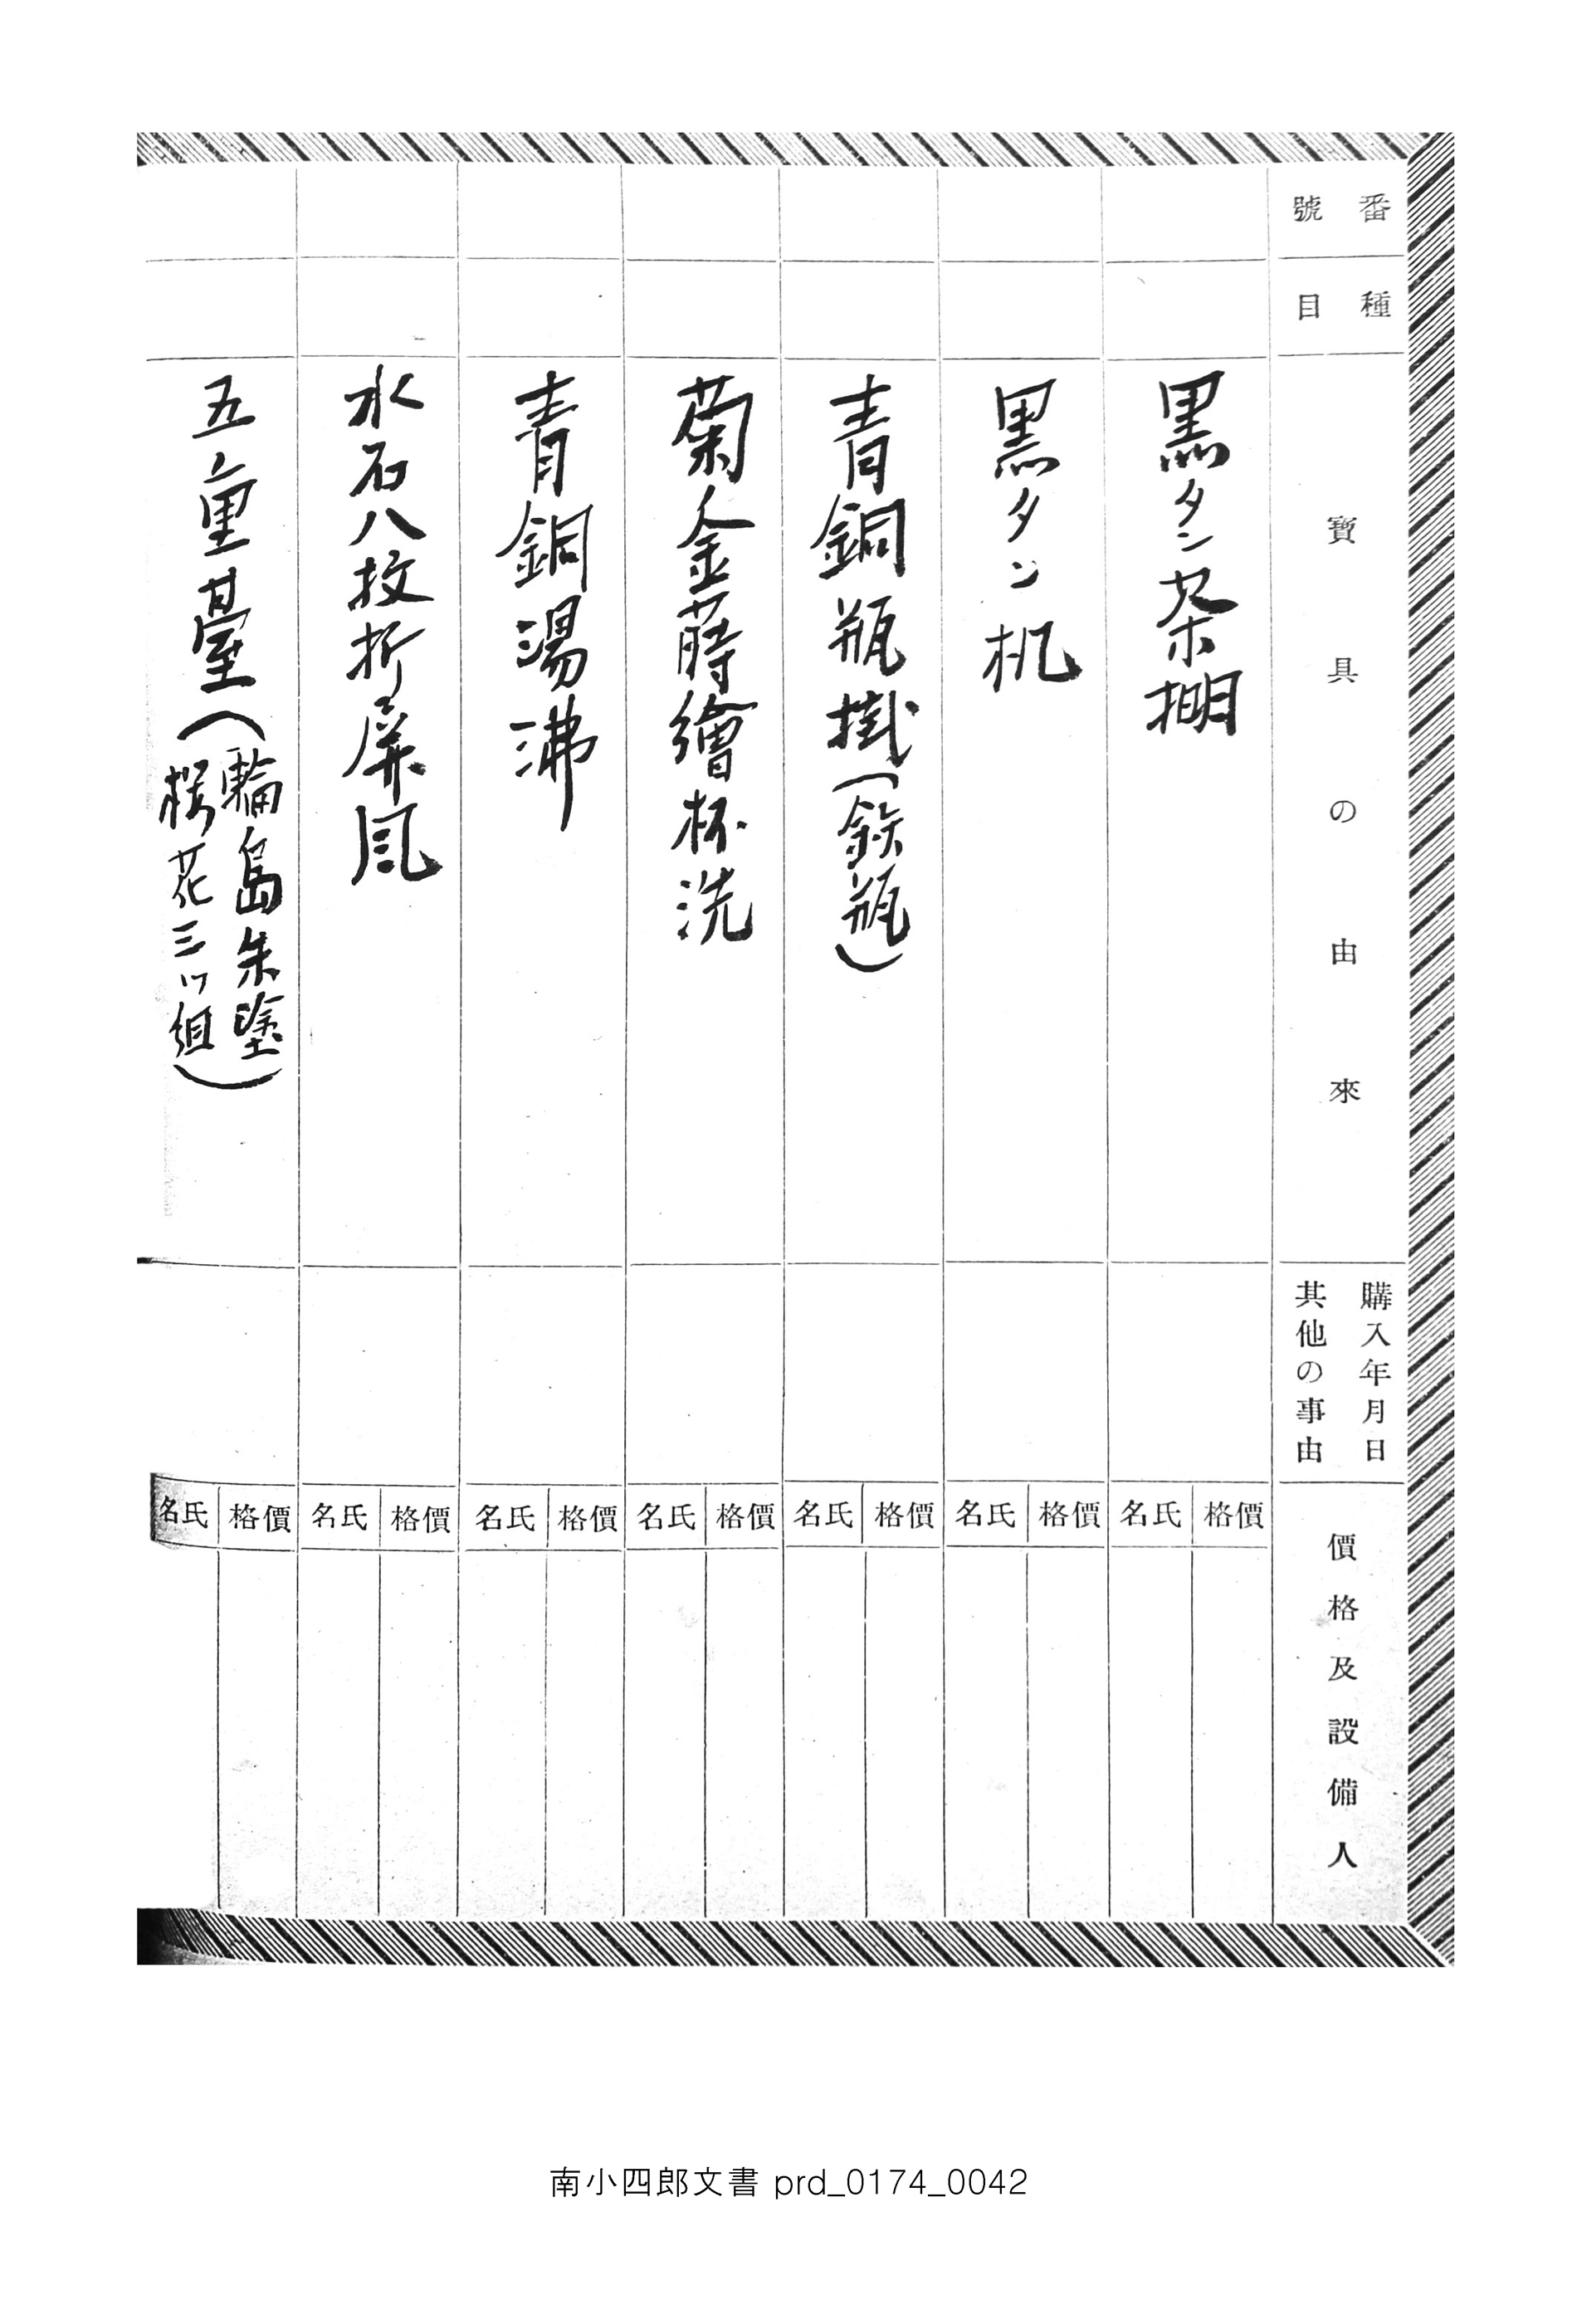 番號
種目
寶具の由來
購入年月日
其他の事由
價格及設備人
黒タン茶棚
價格
氏名
黒タン机
價格
氏名
青銅瓶掛(鉄瓶)
價格
氏名
菊金蒔繪杯洗
價格
氏名
青銅湯沸
價格
氏名
水石八枚折屏風
價格
氏名
五重臺(輪島朱塗
桜花三ツ組)
價格
氏名
南小四郎文書 prd_0174_0042